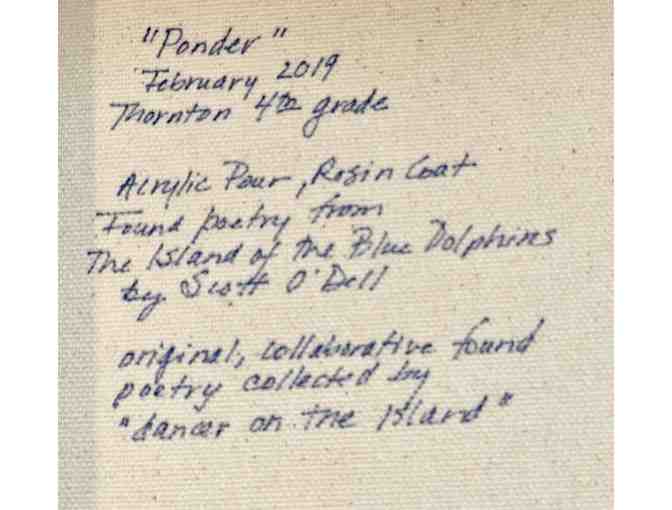 "Ponder"
February 2019
Thornton 4th grade
Acrylic Pour, Resin Coat
Found poetry from
The Island of the Blue Dolphins
by Scott O'Dell
original, collaborative found
poetry collected by
"dancer on the Island"